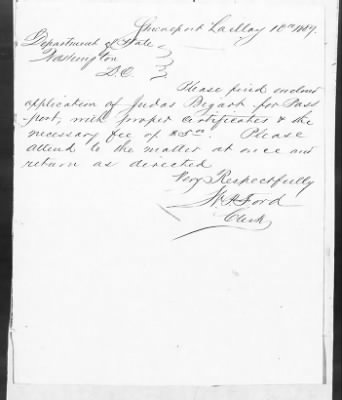 Shreveport La May 10th 1889.
Department of State
Washington
D.C.
Please find enclosed
application of Judas Bogart for Pass
port, with proper certificates & the
necessary fee of $5.00. Please
attend to the matter at once and
return as directed
Very Respectfully
Ford
Clerk